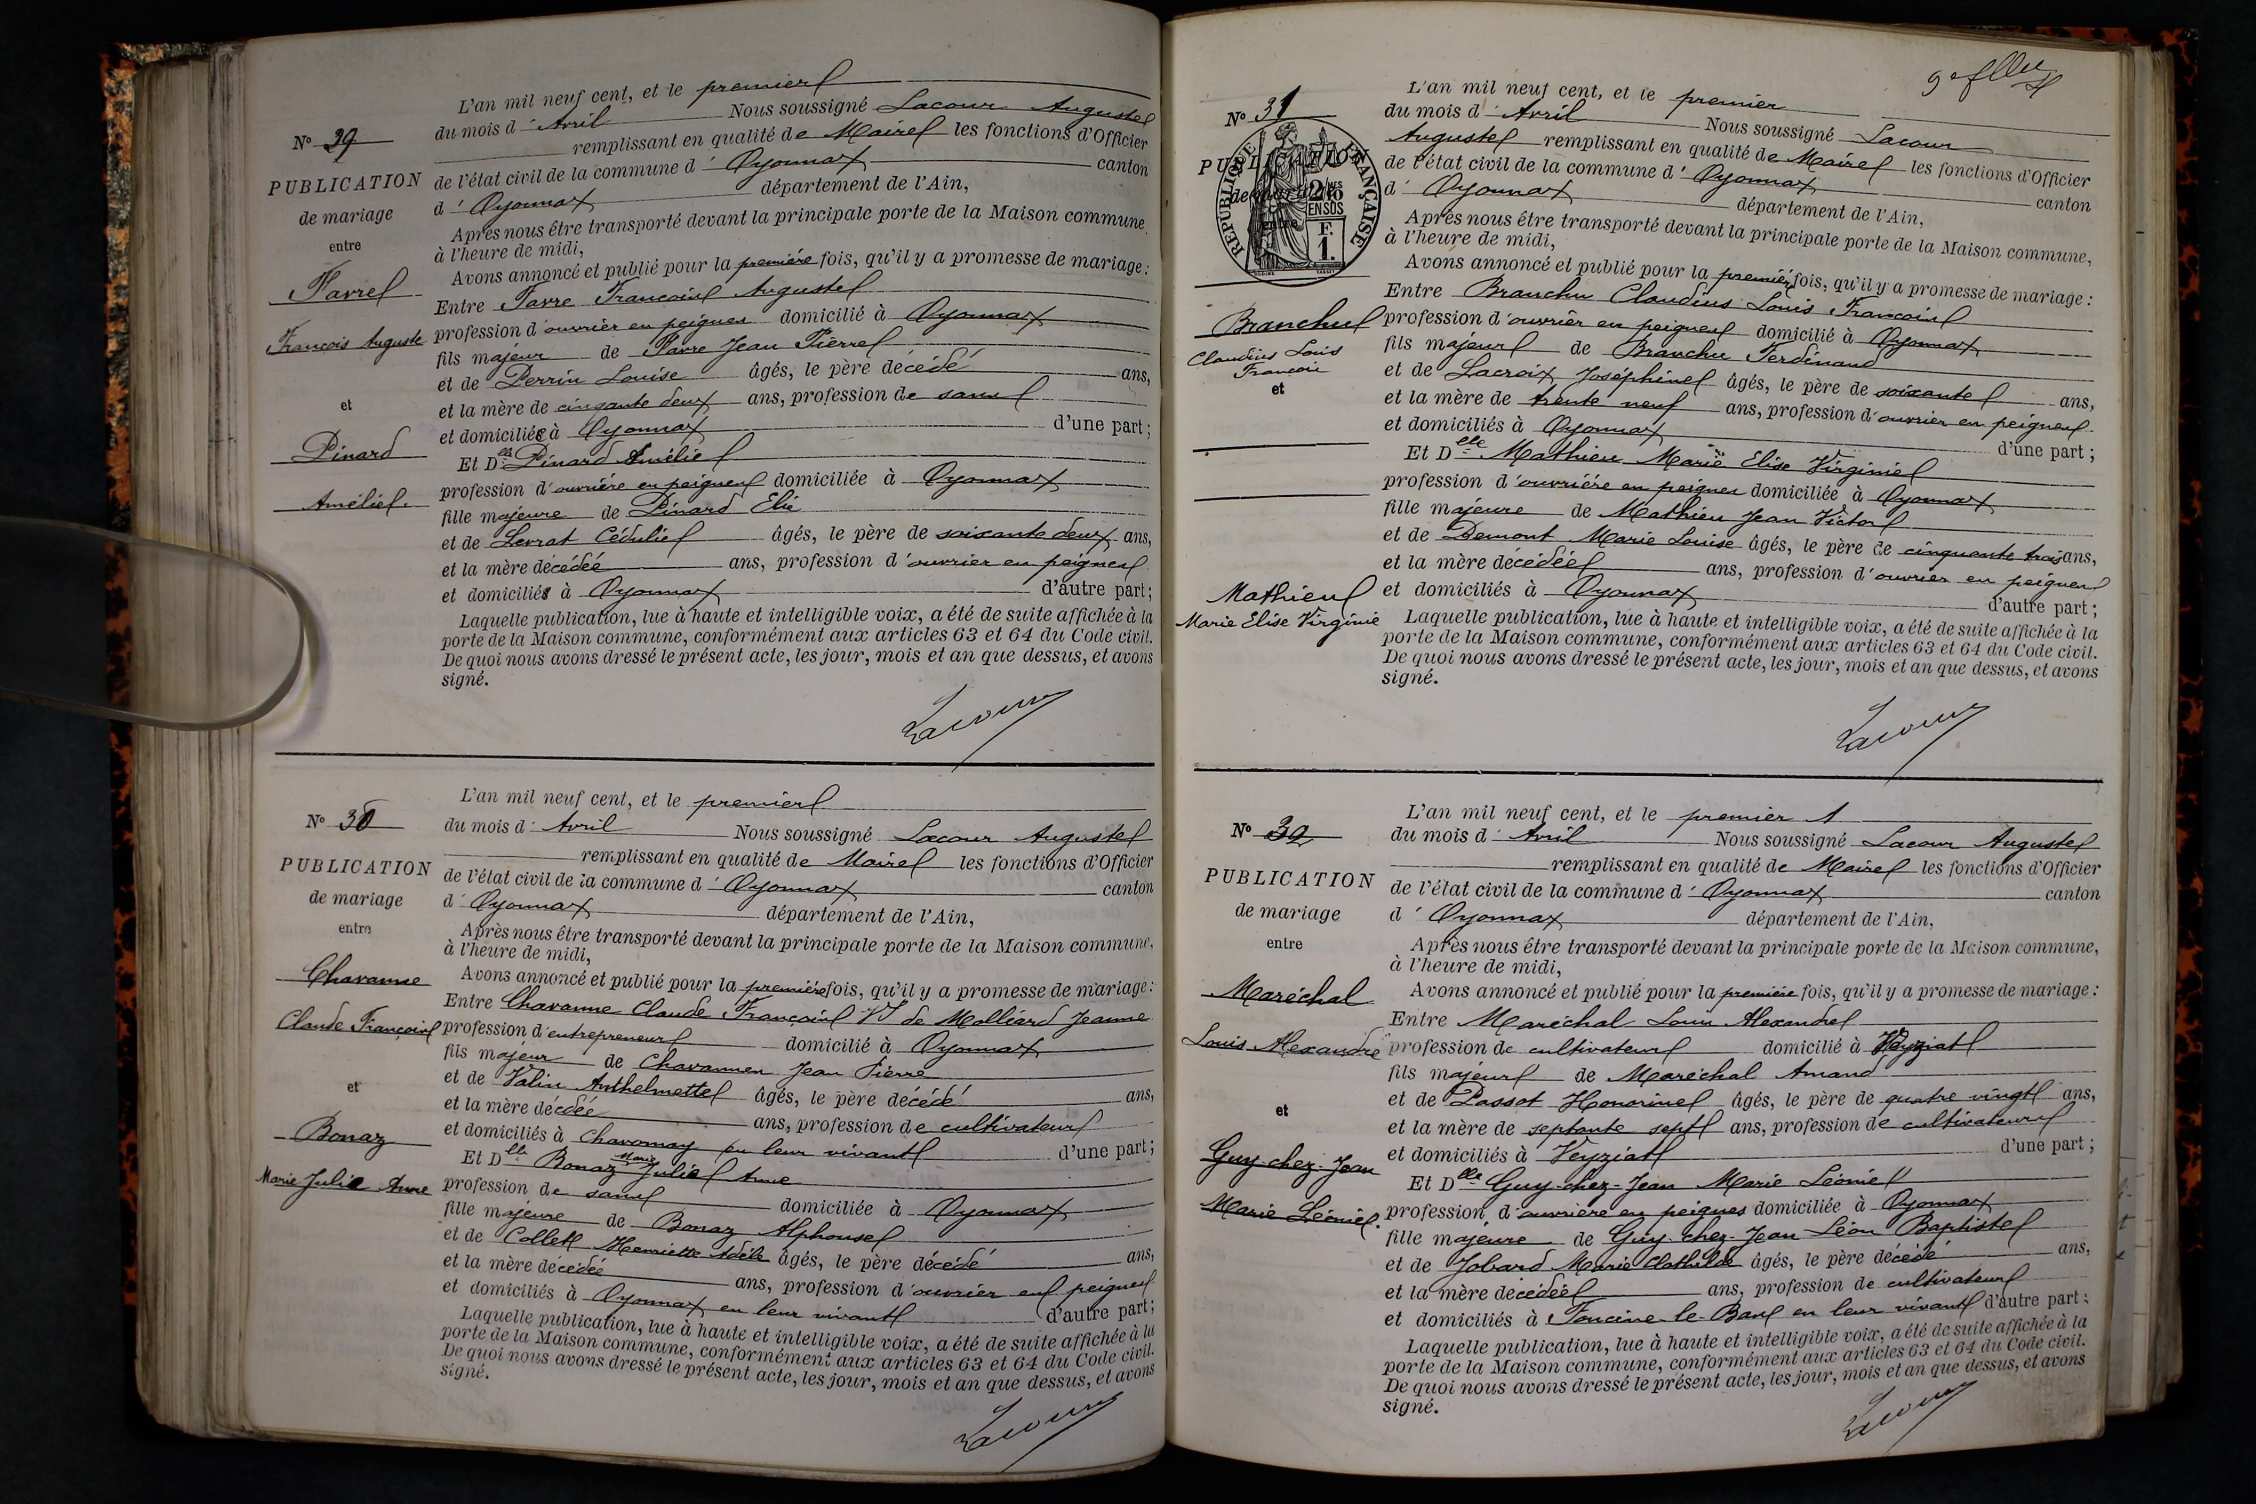 L'an mil neuf cent, et le premier
du mois d'Avril Nous soussigné Lacour Auguste
remplissant en qualité de Maire les fonctions d'Officier
de l'état civil de la commune d'Oyonnax canton
d'Oyonnax département de l'Ain,
Après nous être transporté devant la principale porte de la Maison commune
à l'heure de midi,
Avons annoncé et publié pour la première fois, qu'il y a promesse de mariage :
Entre Favre François Auguste
profession d'ouvrier en peignes domicilié à Oyonnax
fils majeur de Favre Jean Pierre
et de Perrin Louise âgés, le père décédé ans,
et la mère de cinqante deux ans, profession de sans
et domiciliés à Oyonnax d'une part ;
Et Dlle Pinard Amélie
profession d'ouvrière en peignes domiciliée à Oyonnax
fille majeure de Pinard Elie
et de Levrat Cédulie âgés, le père de soixante deux ans,
et la mère décédée ans, profession d'ouvrier en peignes
et domiciliés à Oyonnax d'autre part ;
Laquelle publication, lue à haute et intelligible voix, a été de suite affichée à la
porte de la Maison commune, conformément aux articles 63 et 64 du Code civil.
De quoi nous avons dressé le présent acte, les jour, mois et an que dessus, et avons
signé.
Lacour
N°
PUBLICATION
de mariage
entre
Favre
François Auguste
et
Pinard
Amélie.
L'an mil neuf cent, et le premier
du mois d'Avril Nous soussigné Lacour Auguste
remplissant en qualité de Maire les fonctions d'Officier
de l'état civil de la commune d'Oyonnax canton
d'Oyonnax département de l'Ain,
Après nous être transporté devant la principale porte de la Maison commune,
à l'heure de midi,
Avons annoncé et publié pour la première fois, qu'il y a promesse de mariage :
Entre Chavanne Claude François Vf de Molliard Jeanne
profession d'entrepreneur domicilié à Oyonnax
fils majeur de Chavannes Jean Pierre
et de Valin Anthelmette âgés, le père décédé ans,
et la mère décdéé ans, profession de cultivateur
et domiciliés à Chavornay en leur vivant d'une part ;
Et Dlle Bonaz Marie Julie Anne
profession de sans domiciliée à Oyonnax
fille majeure de Bonaz Alphonse
et de Collet Henriette Adèle âgés, le père décédé ans,
et la mère décédée ans, profession d'ouvrier en peignes
et domiciliés à Oyonnax en leur vivant d'autre part ;
Laquelle publication, lue à haute et intelligible voix, a été de suite affichée à la
porte de la Maison commune, conformément aux articles 63 et 64 du Code civil.
De quoi nous avons dressé le présent acte, les jour, mois et an que dessus, et avons
signé.
Lacour
N° 30
PUBLICATION
de mariage
entre
Chavanne
Claude François
et
Bonaz
Marie Julie Anne
L'an mil neuf cent, et le premier
du mois d'Avril Nous soussigné Lacour
Auguste remplissant en qualité de Maire les fonctions d'Officier
de l'état civil de la commune d'Oyonnax canton
d'Oyonnax département de l'Ain,
Après nous être transporté devant la principale porte de la Maison commune,
à l'heure de midi,
Avons annoncé et publié pour la première fois, qu'il y a promesse de mariage :
Entre Branchu Claudius Louis François
profession d'ouvrier en peignes domicilié à Oyonnax
fils majeur de Branchu Ferdinand
et de Lacroix Joséphine âgés, le père de soixante ans,
et la mère de trente neuf ans, profession d'ouvrier en peignes
et domiciliés à Oyonnax d'une part ;
Et Dlle Mathieu Marie Elise Virginie
profession d'ouvrière en peignes domiciliée à Oyonnax
fille majeure de Mathieu Jean Victor
et de Demont Marie Louise âgés, le père de cinquante trois ans,
et la mère décédée ans, profession d'ouvrier en peignes
et domiciliés à Oyonnax d'autre part ;
Laquelle publication, lue à haute et intelligible voix, a été de suite affichée à la
porte de la Maison commune, conformément aux articles 63 et 64 du Code civil.
De quoi nous avons dressé le présent acte, les jour, mois et an que dessus, et avons
signé.
Lacour
N° 31
PUBLICATION
de mariage
entre
RÉPUBLIQUE FRANÇAISE
2/10 ES
EN SUS
F.
1.
Branchu
Claudius Louis
François
et
Mathieu
Marie Elise Virginie
L'an mil neuf cent, et le premier
du mois d'Avril Nous soussigné Lacour Auguste
remplissant en qualité de Maire les fonctions d'Officier
de l'état civil de la commune d'Oyonnax canton
d'Oyonnax département de l'Ain,
Après nous être transporté devant la principale porte de la Maison commune,
à l'heure de midi,
Avons annoncé et publié pour la première fois, qu'il y a promesse de mariage :
Entre Maréchal Louis Alexandre
profession de cultivateur domicilié à Veyziat
fils majeur de Maréchal Amand
et de Passot Honorine âgés, le père de quatre vingt ans,
et la mère de septante sept ans, profession de cultivateur
et domiciliés à Veyziat d'une part ;
Et Dlle Guy-chez-Jean Marie Léonie
profession, d'ouvrière en peignes domiciliée à Oyonnax
fille majeure de Guy-chez-Jean Léon Baptiste
et de Jobard Marie Clothilde âgés, le père décédé ans,
et la mère décédée ans, profession de cultivateur
et domiciliés à Foncine-le-Bas en leur vivant d'autre part ;
Laquelle publication, lue à haute et intelligible voix, a été de suite affichée à la
porte de la Maison commune, conformément aux articles 63 et 64 du Code civil.
De quoi nous avons dressé le présent acte, les jour, mois et an que dessus, et avons
signé.
Lacour
N° 32
PUBLICATION
de mariage
entre
Maréchal
Louis Alexandre
et
Guy-chez-Jean
Marie Léonie.